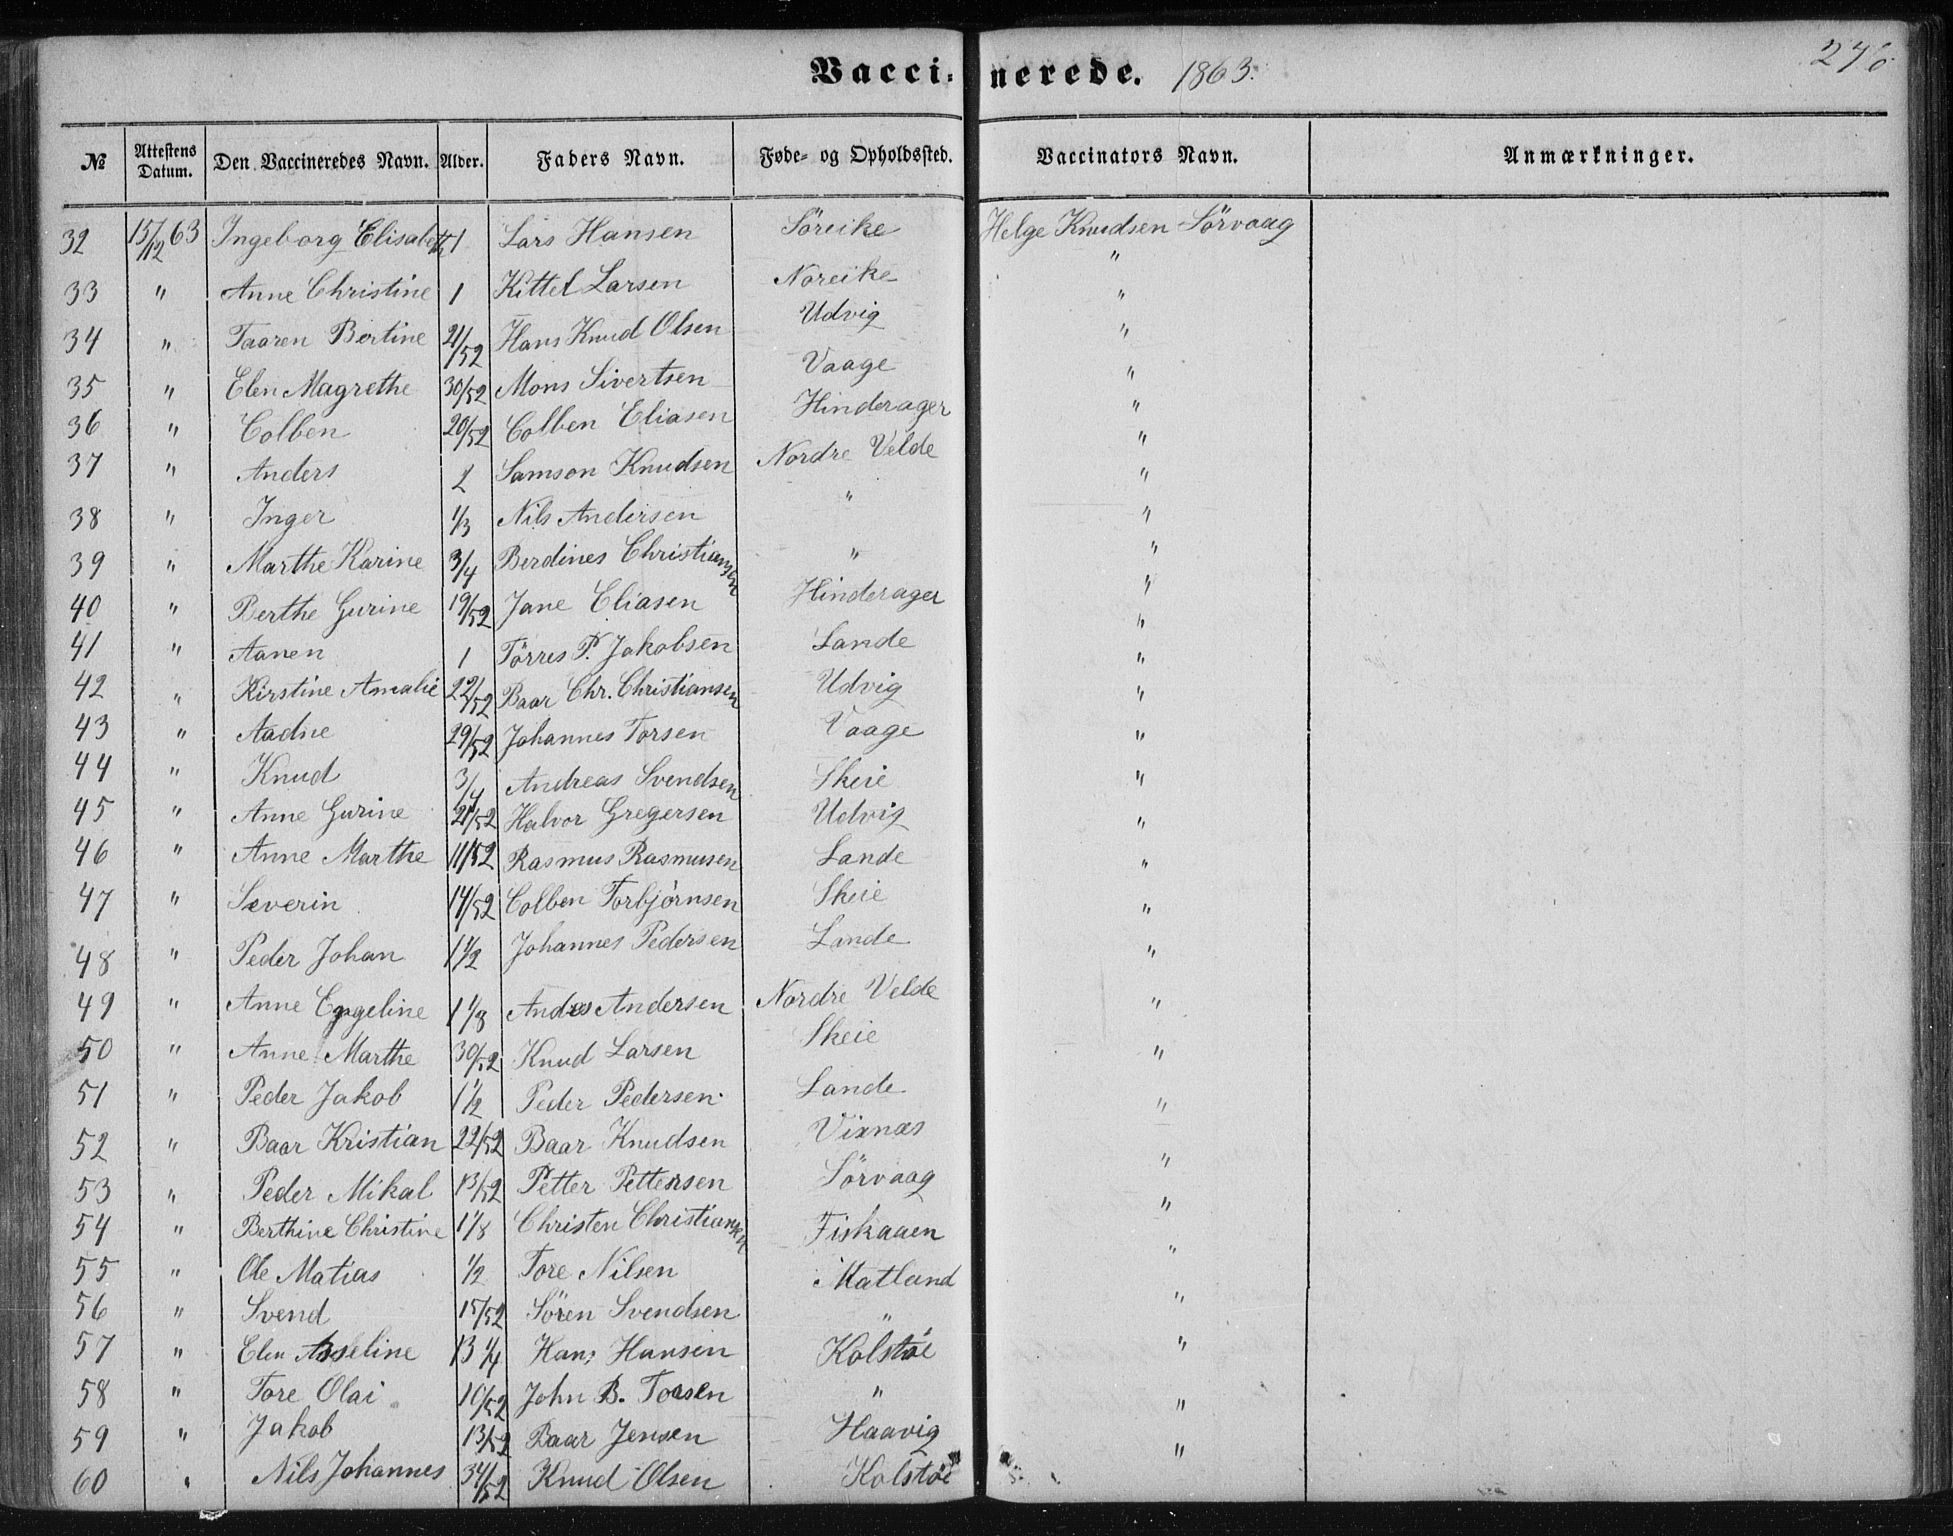 Vaccinerede. 1863.
№ Attestens Datum. Den Vaccineredes Navn. Alder. Faders Navn. Føde- og Opholdssted. Vaccinators Navn. Anmærkninger.
32 15/12 63 Ingeborg Elisabeth 1 Lars Hansen Söreike Helge Knudsen Sörvaag
33 " Anne Christine 1 Kittel Larsen Noreike "
34 " Taaren Bertine 21/52 Hans Knud Olsen Udvig "
35 " Elen Magrethe 30/52 Mons Sivertsen Vaage "
36 " Colben 20/52 Colben Eliasen Hinderager "
37 " Anders 2 Samson Knudsen Nordre Velde "
38 " Inger 1/3 Nils Andersen " "
39 " Marthe Karine 3/4 Berdines Christiansen " "
40 " Berthe Gurine 19/52 Jane Eliasen Hinderager "
41 " Aanen 1 Törres P. Jakobsen Lande "
42 " Kirstine Amalie 22/52 Baar Chr. Christiansen Udvig "
43 " Aadne 29/52 Johannes Torsen Vaage "
44 " Knud 3/4 Andreas Svendsen Skeie "
45 " Anne Gurine 21/52 Halvor Gregersen Udvig "
46 " Anne Marthe 11/52 Rasmus Rasmusen Lande "
47 " Severin 14/52 Colben Torbjörnsen Skeie "
48 " Peder Johan 1 1/2 Johannes Pedersen Lande "
49 " Anne Engeline 1 1/8 Andes Andersen Nordre Velde "
50 " Anne Marthe 30/52 Knud Larsen Skeie "
51 " Peder Jakob 1 1/2 Peder Pedersen Lande "
52 " Baar Kristian 22/52 Baar Knudsen Vixnæs "
53 " Peder Mikal 13/52 Petter Pettersen Sörvaag "
54 " Berthine Christine 1 1/8 Christen Christiansen Fiskaaen "
55 " Ole Matias 1/2 Tore Nilsen Matland "
56 " Svend 15/52 Sören Svendsen " "
57 " Elen Asseline 13 1/4 Hans Hansen Kolstöe "
58 " Tore Olai 10/52 John B. Torsen " "
59 " Jakob 13/52 Baar Jensen Haavig "
60 " Nils Johannes 34/52 Knud Olsen Kolstöe